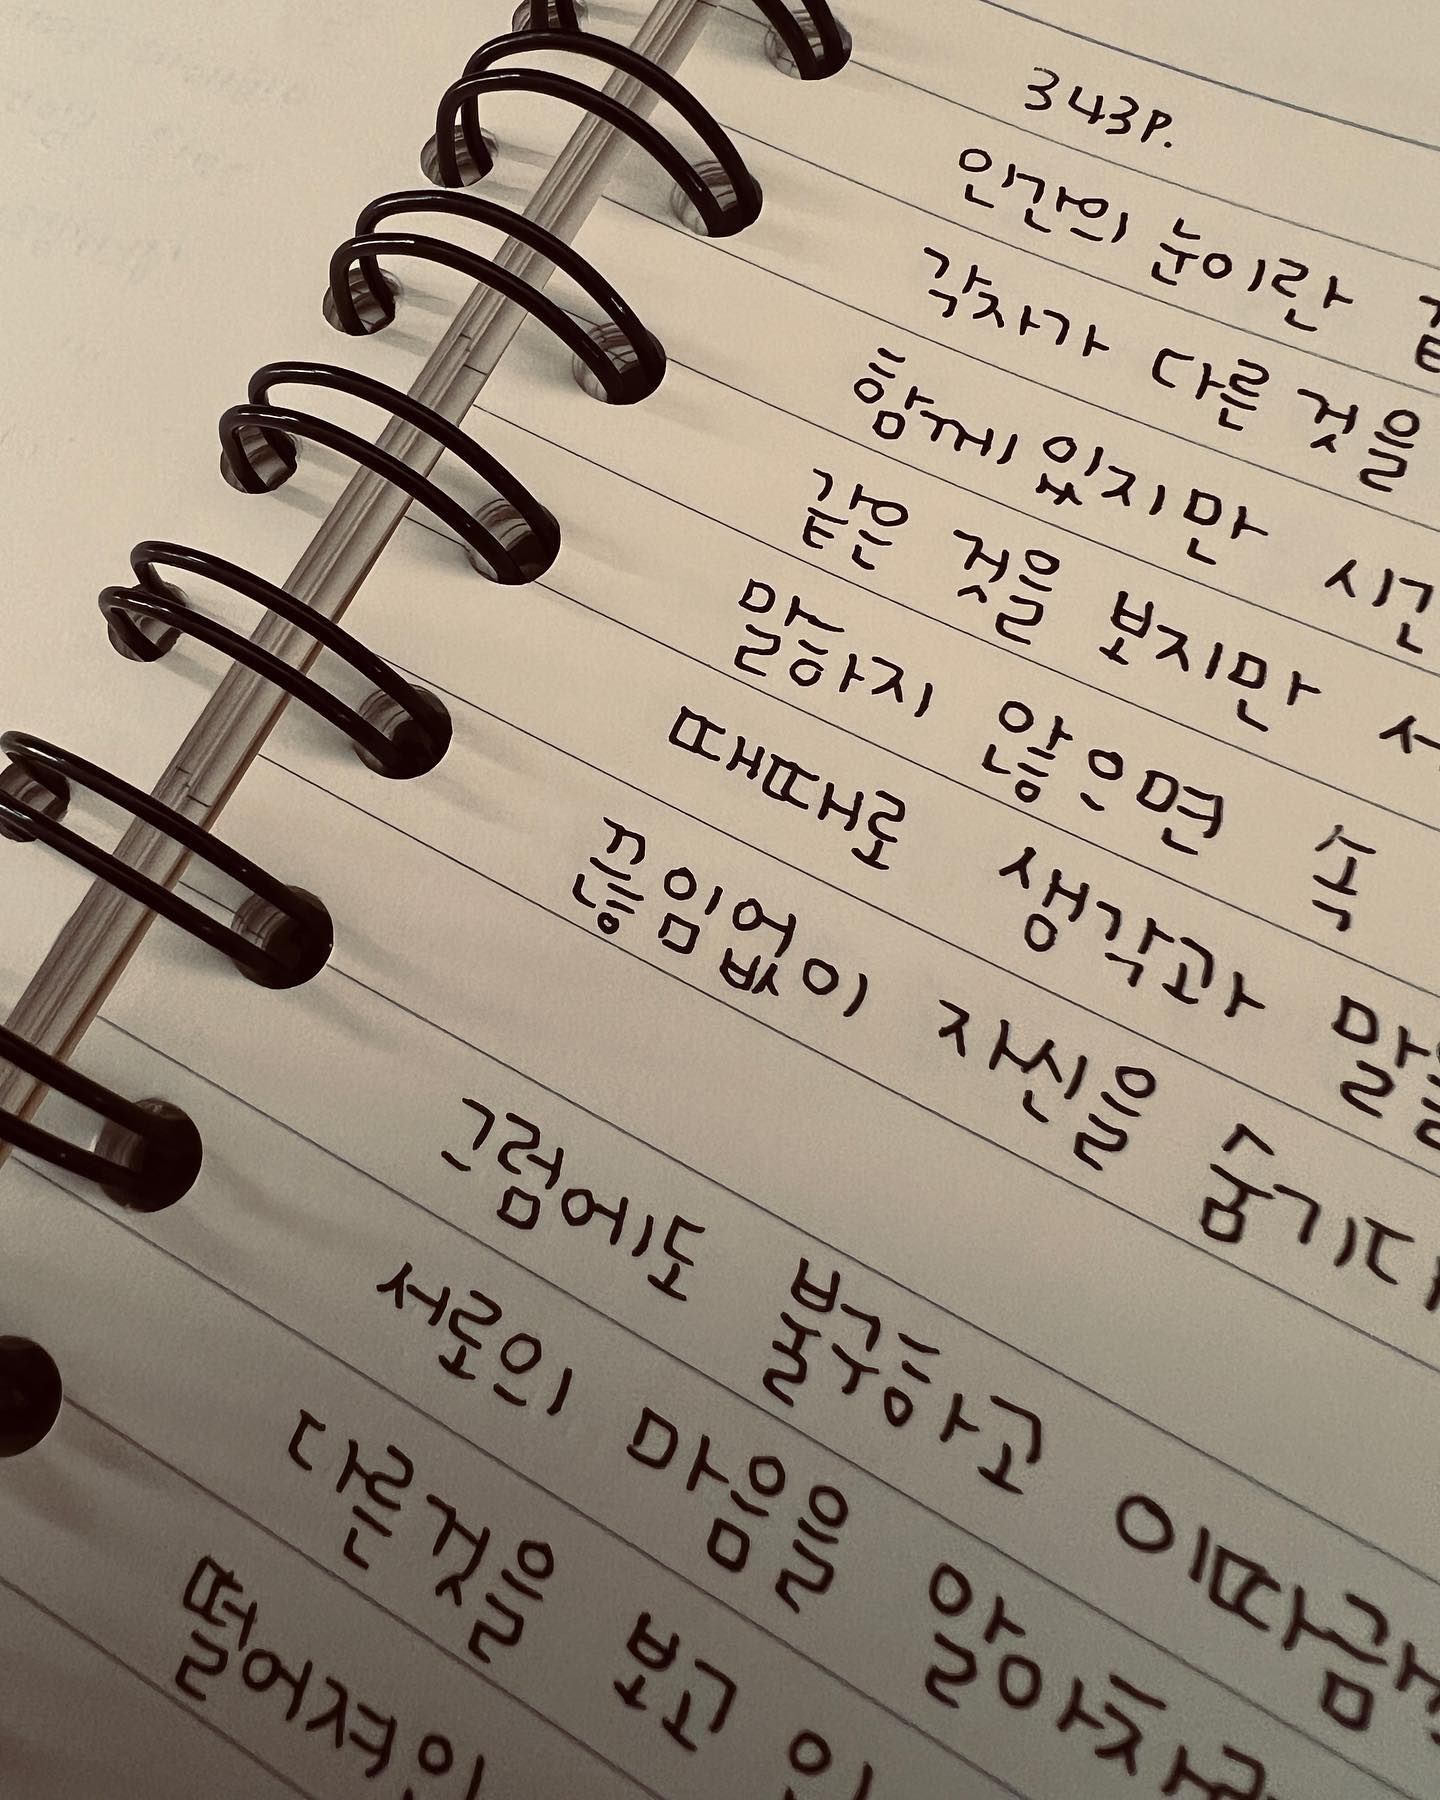 343P.
인간의 눈이란
각자가 다른 것을
함께 있지만 시간
같은 것을 보지만
말하지 않으면 속
때때로 생각과 말을
끊임없이 자신을 숨기다
그럼에도 불구하고 이따금
서로의 마음을 알아차
다른것을 보고
떨어져